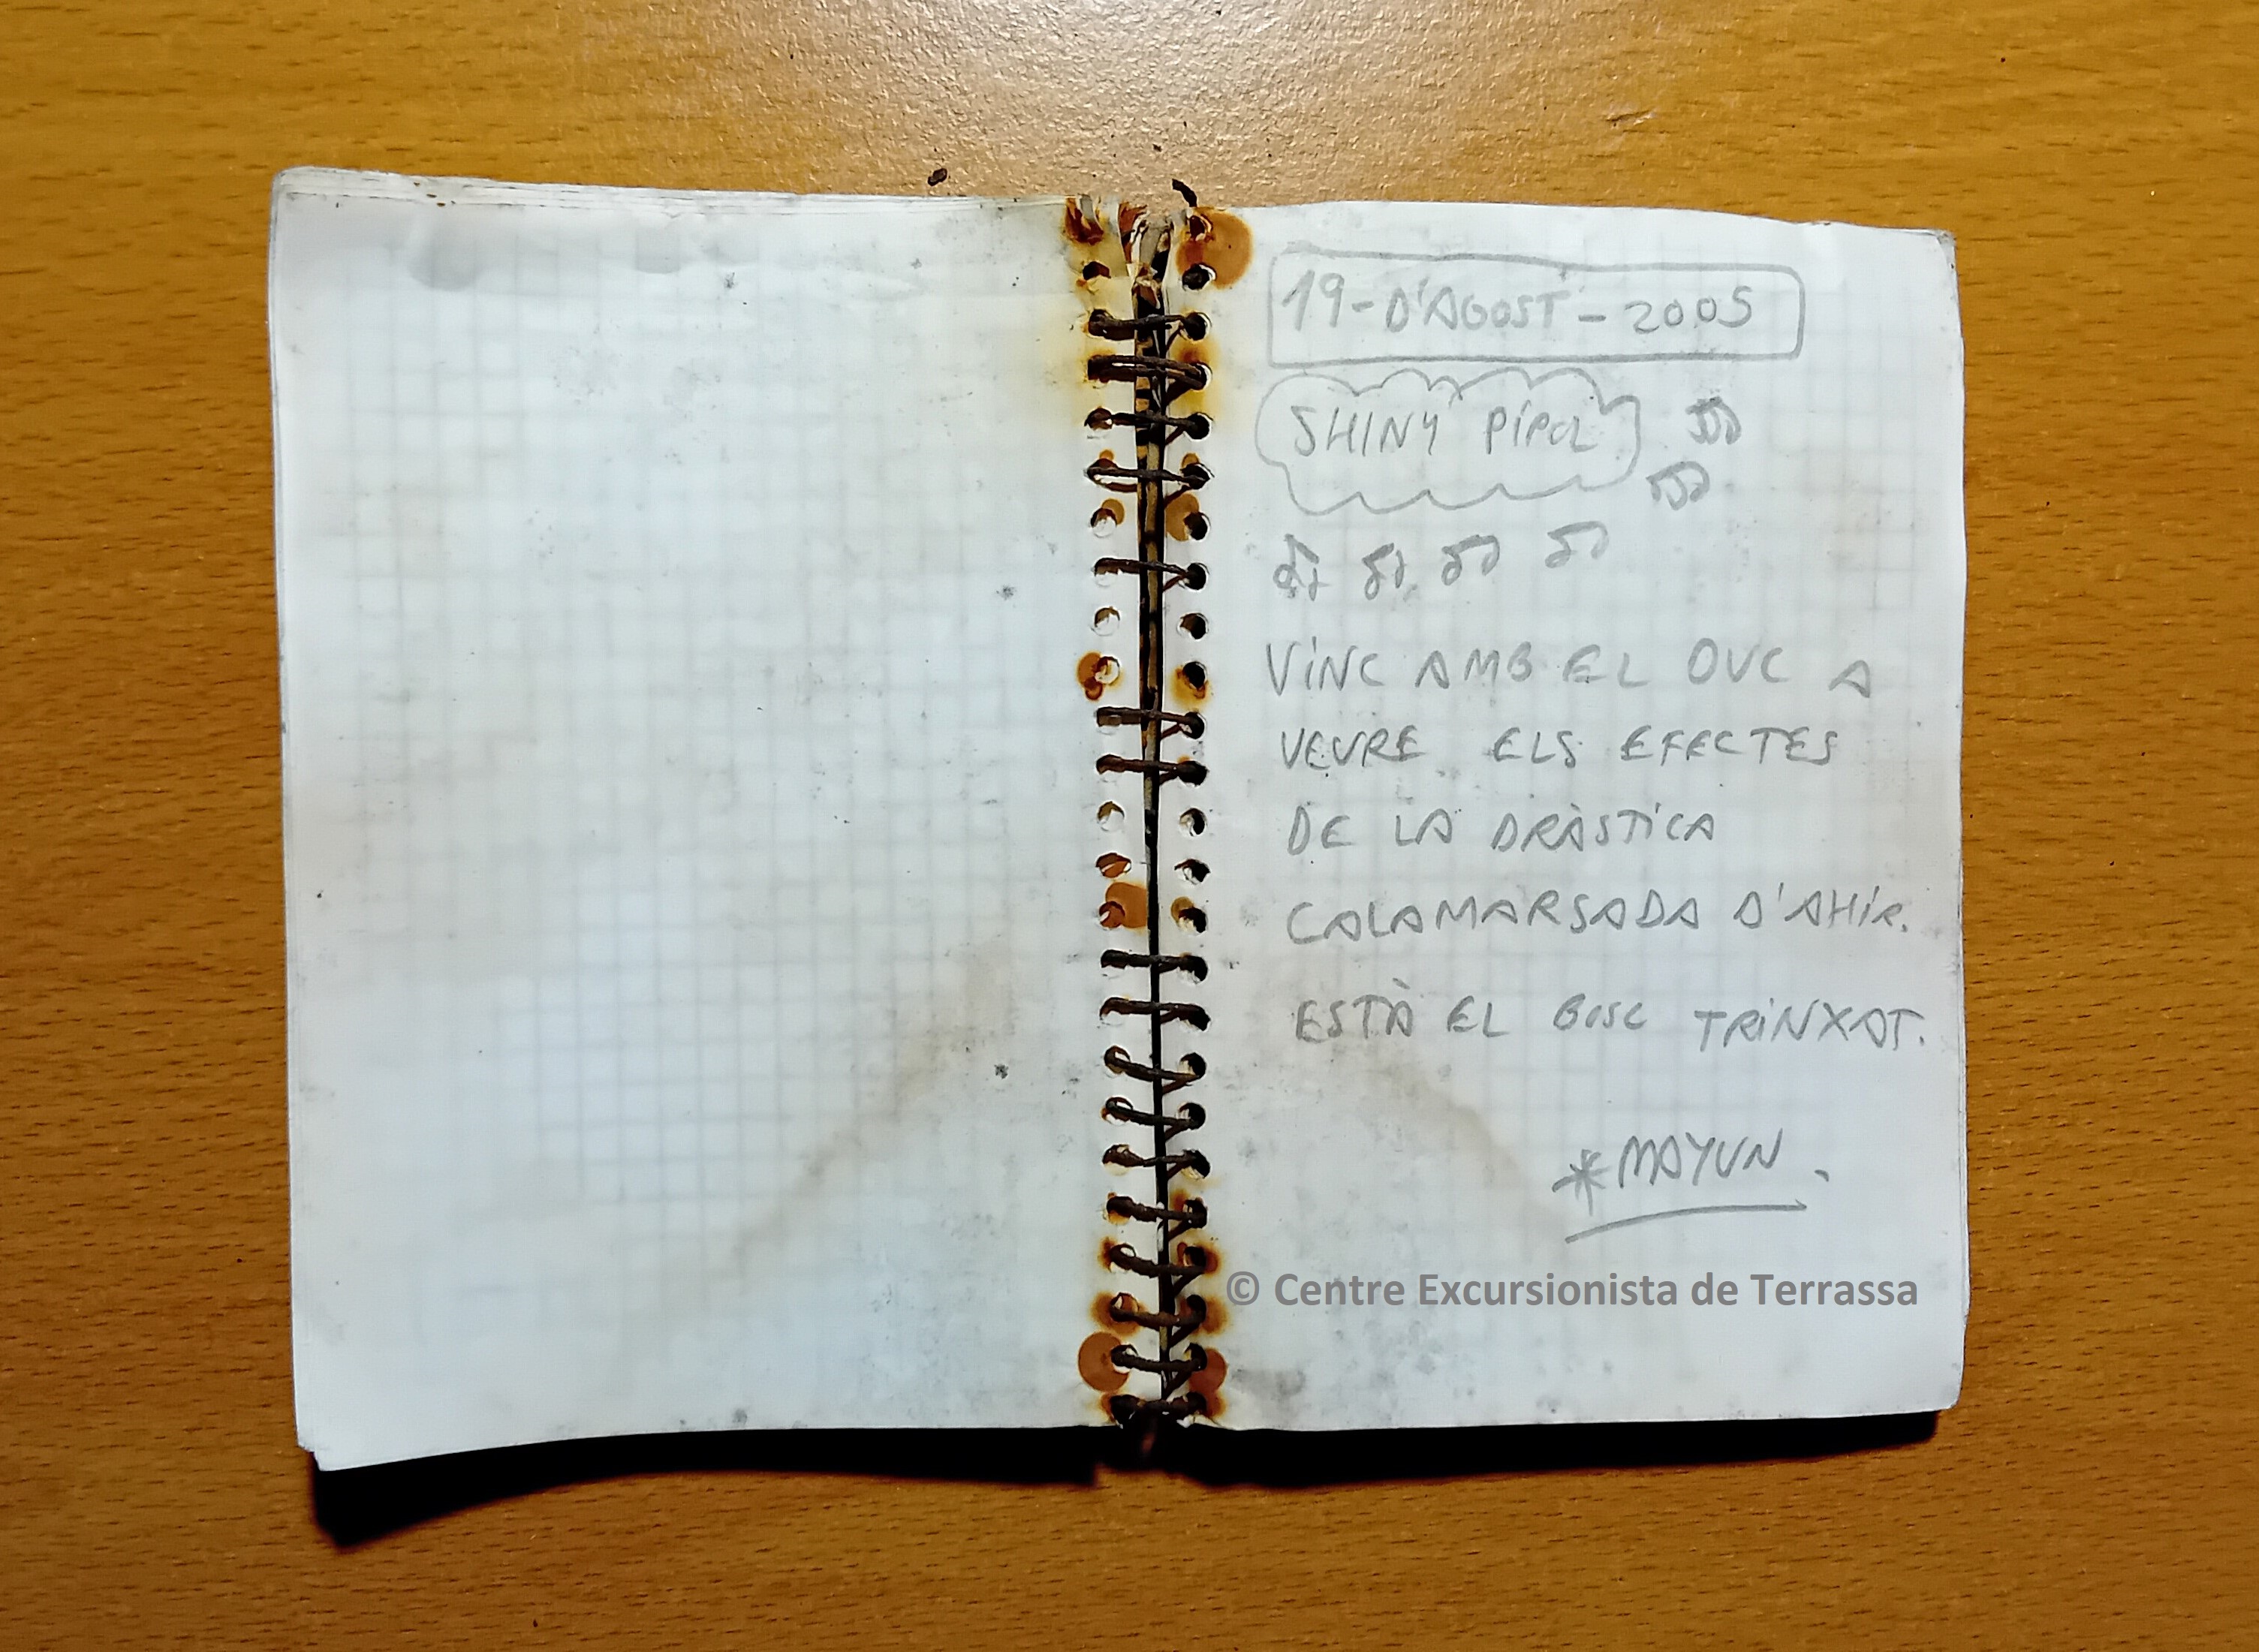 19-D'AGOST-2005
SHINY PÍPOL
VINC AMB EL OUC A
VEURE ELS EFECTES
DE LA DRÀSTICA
CALAMARSADA D'AHIR.
ESTÀ EL BOSC TRINXAT.
*MAYUN.
© Centre Excursionista de Terrassa